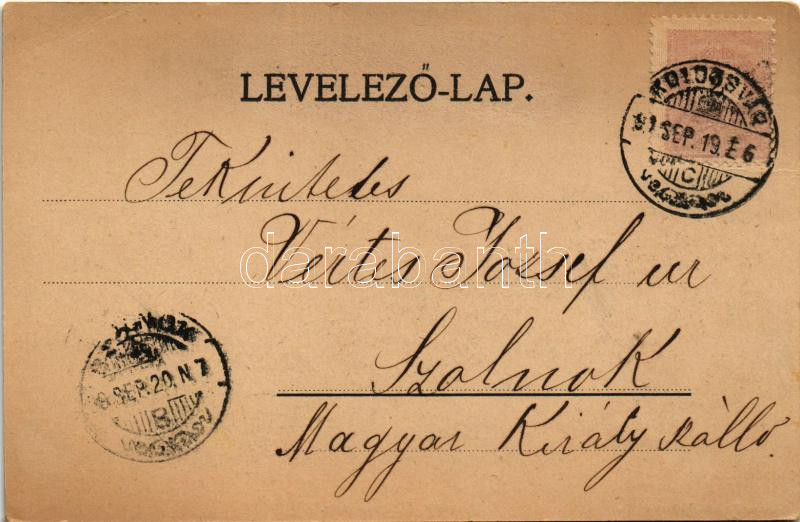 LEVELEZŐ-LAP.
KOLOZSVÁR
SEP. 19. E 6
C
Tekintetes
Vértes József úr
darabanth
Szolnok
SEP. 20. N. 7
B
Magyar Király szálló.